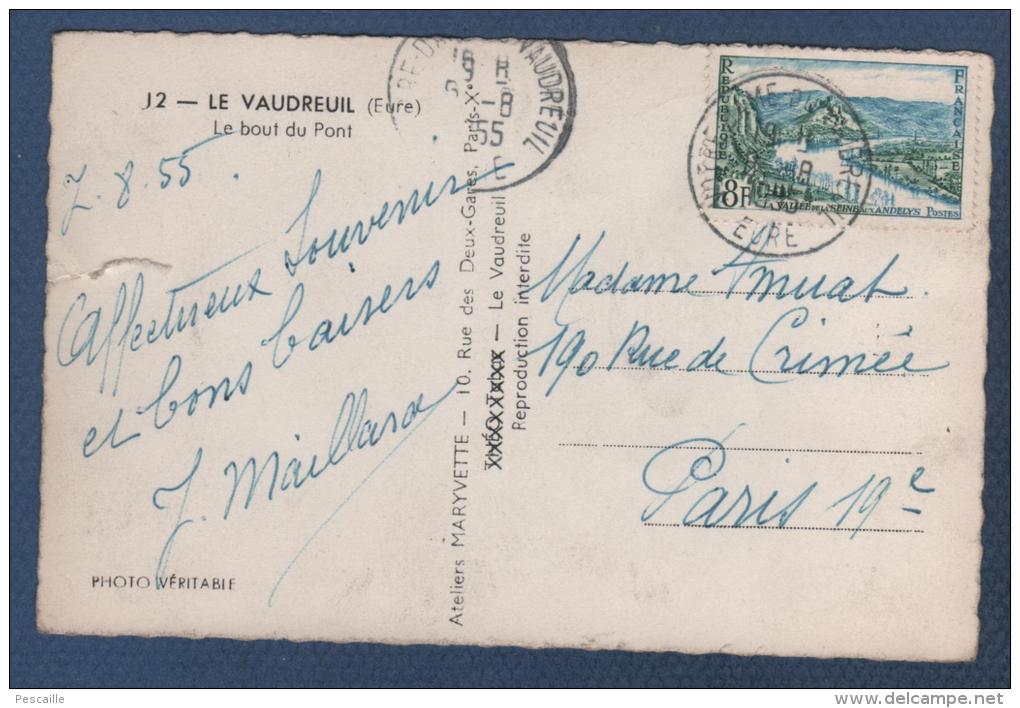 J2 — LE VAUDREUIL (Eure)
Le bout du Pont
7.8.55.
Affectueux Souvenir
et bons baisers
J. Maillard
PHOTO VÉRITABLE
Ateliers MARYVETTE — 10, Rue des Deux-Gares, Paris-Xe
— Le Vaudreuil
Reproduction interdite
VAUDREUIL
-8
55
E
REPUBLIQUE
FRANÇAISE
8F
VALLÉE DE LA SEINE AUX ANDELYS POSTES
EURE
Madame Amuat.
190 Rue de Crimée
Paris 19e
Pescaille
http://www.delcampe.net